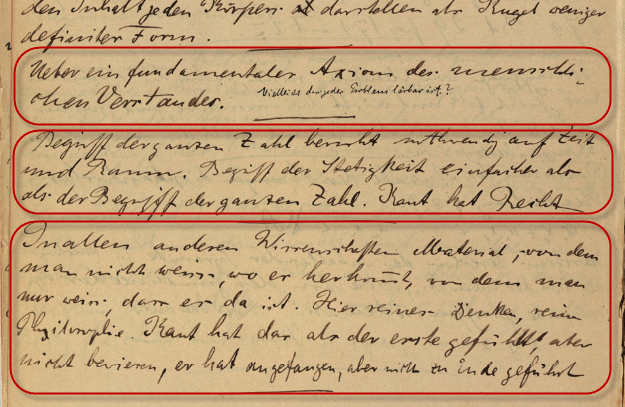 den Inhalt jeden Körpers darstellen als Kugel weniger
definiter Form.
Ueber ein fundamentaler Axiom des menschli-
chen Verstandes.
Vielleicht dass jedes Problem lösbar ist?
Begriff der ganzen Zahl beruht nothwendig auf Zeit
und Raum. Begriff der Stetigkeit einfacher als
als der Begriff der ganzen Zahl. Kant hat Recht
In allen anderen Wissenschaften Material, von dem
man nicht weiss, wo er herkommt, von dem man
nur weiss, dass es da ist. Hier reines Denken, reine
Philosophie. Kant hat das als der erste gefühlt, aber
nicht bewiesen, er hat angefangen, aber nicht zu Ende geführt